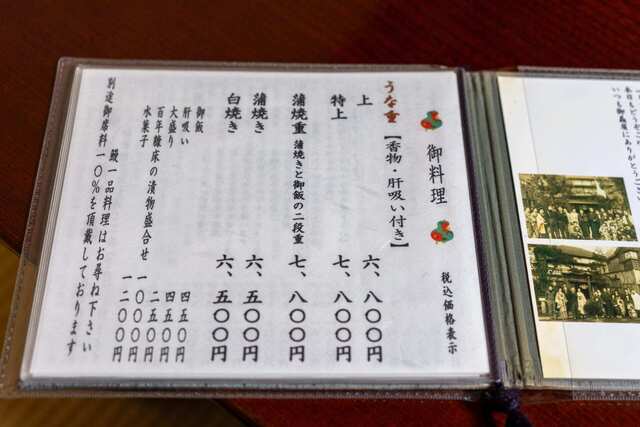 いつも御贔屓にありがとうござ
御料理
税込価格表示
うな重【香物・肝吸い付き】
上 六、八〇〇円
特上 七、八〇〇円
蒲焼重 蒲焼きと御飯の二段重 七、八〇〇円
蒲焼き 六、五〇〇円
白焼き 六、五〇〇円
御飯 四五〇円
肝吸い 四五〇円
大盛り 二五〇円
百年糠床の漬物盛合せ 一〇〇〇円
水菓子 一二〇〇円
鰻一品料理はお尋ね下さい
別途御席料一〇%を頂戴しております